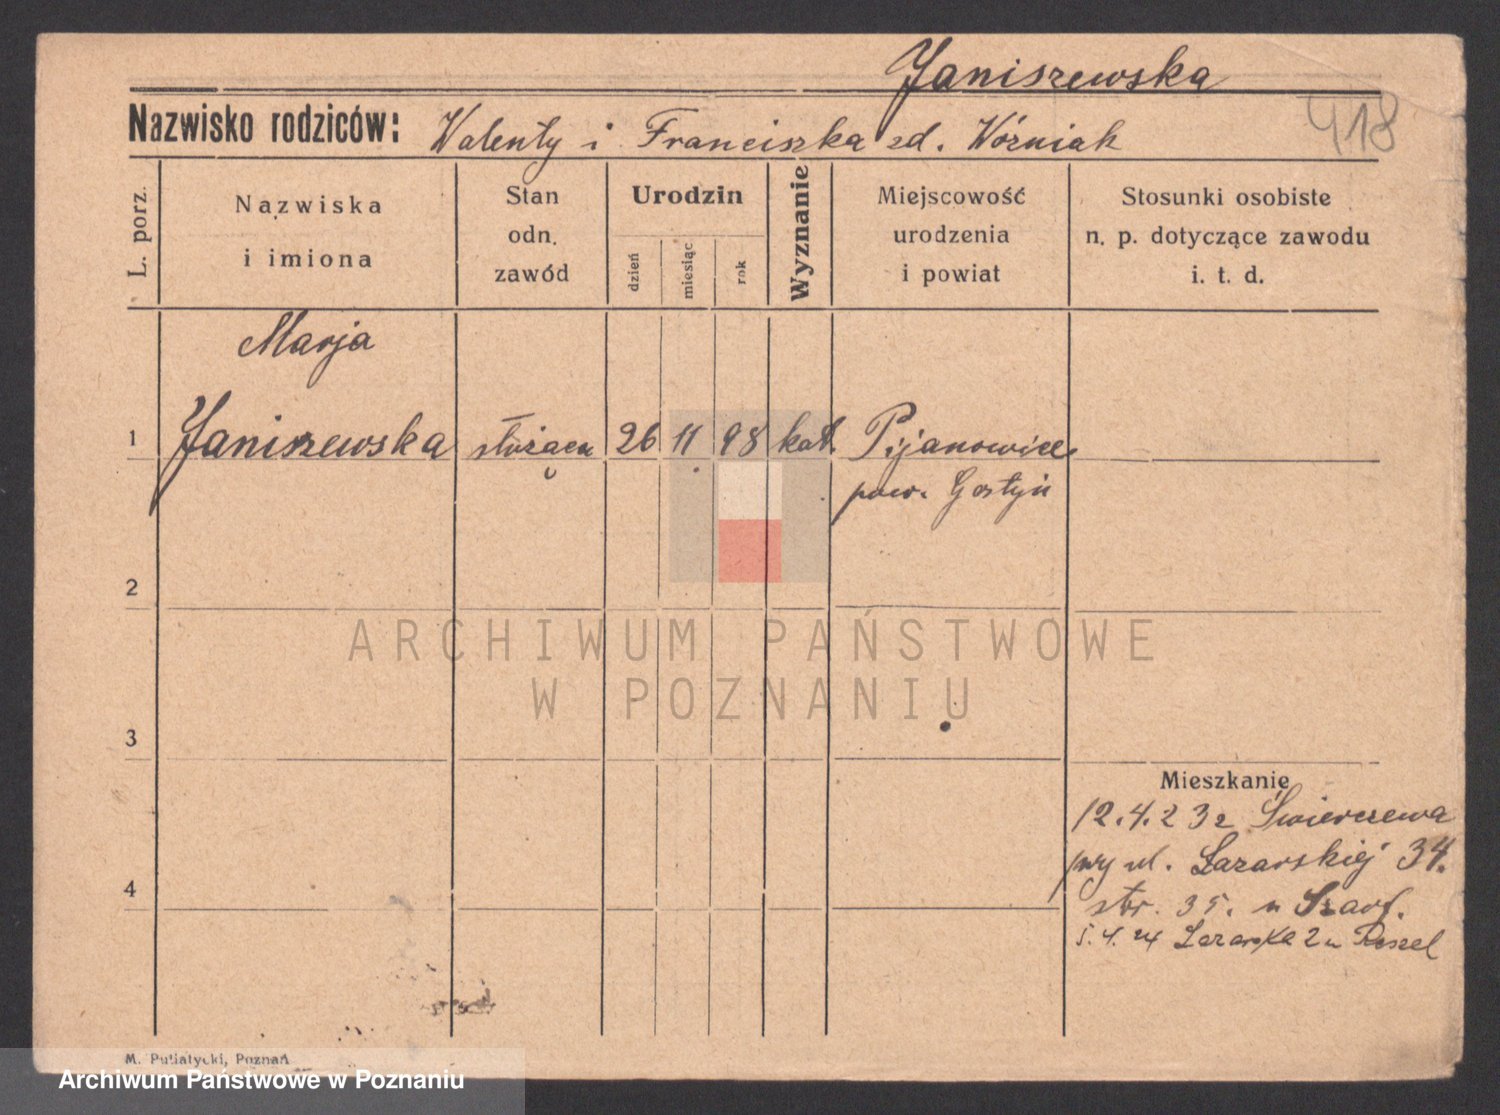 Janiszewska
418
Nazwisko rodziców: Walenty i Franciszka zd. Woźniak
L. porz.
Nazwiska
i imiona
Stan
odn.
zawód
Urodzin
dzień
miesiąc
rok
Wyznanie
Miejscowość
urodzenia
i powiat
Stosunki osobiste
n. p. dotyczące zawodu
i. t. d.
Marja
1 Janiszewska służąca 26 11 98 kat. Pijanowice
pow. Gostyń
2
ARCHIWUM PAŃSTWOWE
W POZNANIU
3
Mieszkanie
12.4.23 z Świerczewa
przy ul. Łazarskiej 34.
4
str. 35. u Szarf.
5.4.24 Łazarska 2 u
M. Putiatycki, Poznań
Archiwum Państwowe w Poznaniu